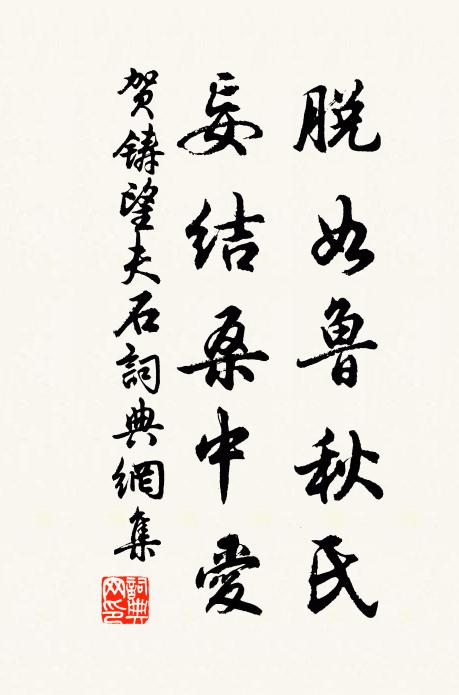 脱如鲁秋氏
妄结桑中爱
贺铸望夫石詞典網集
詞典网印